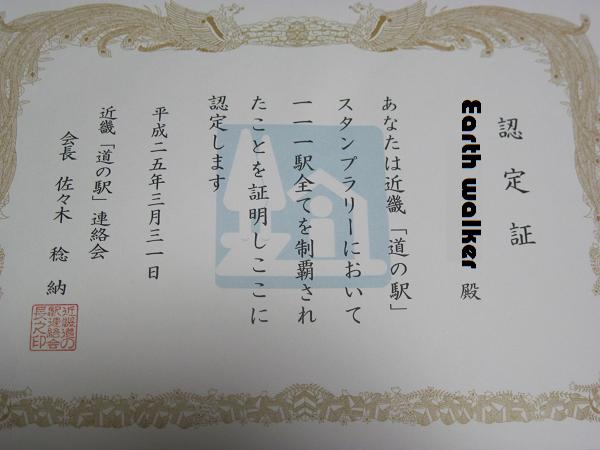 認定証
Earth walker 殿
あなたは近畿「道の駅」
スタンプラリーにおいて
一一一駅全てを制覇され
たことを証明しここに
認定します
平成二五年三月三一日
近畿「道の駅」連絡会
会長 佐々木 稔納
近畿道の
駅連絡会
長之印